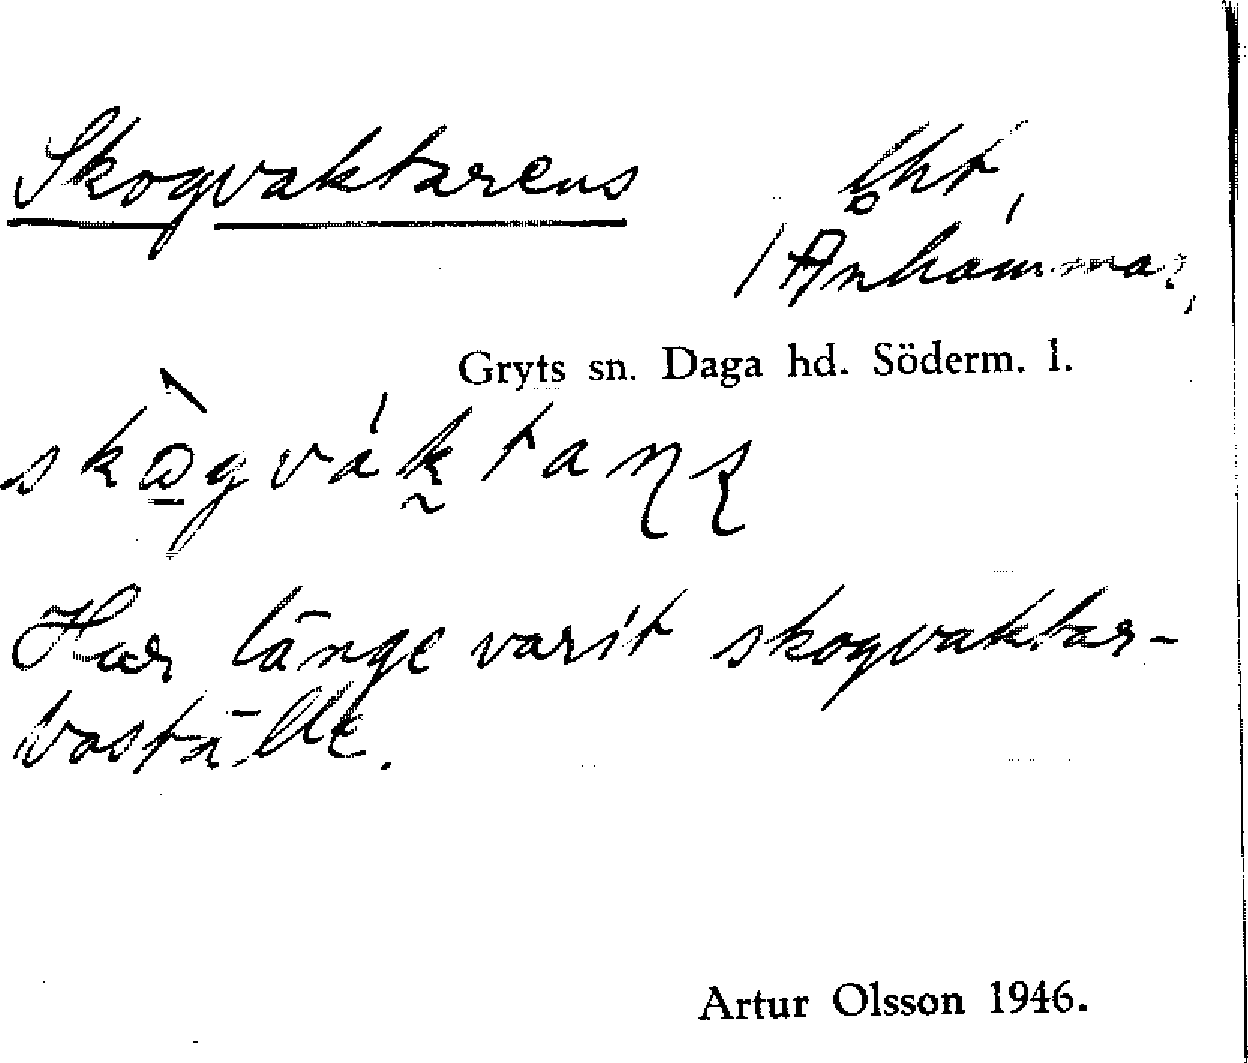 Skogvaktarens lht,
/ Ånhammar,
Gryts sn. Daga hd. Söderm. l.
Har länge varit skogvaktar-
boställe.
Artur Olsson 1946.